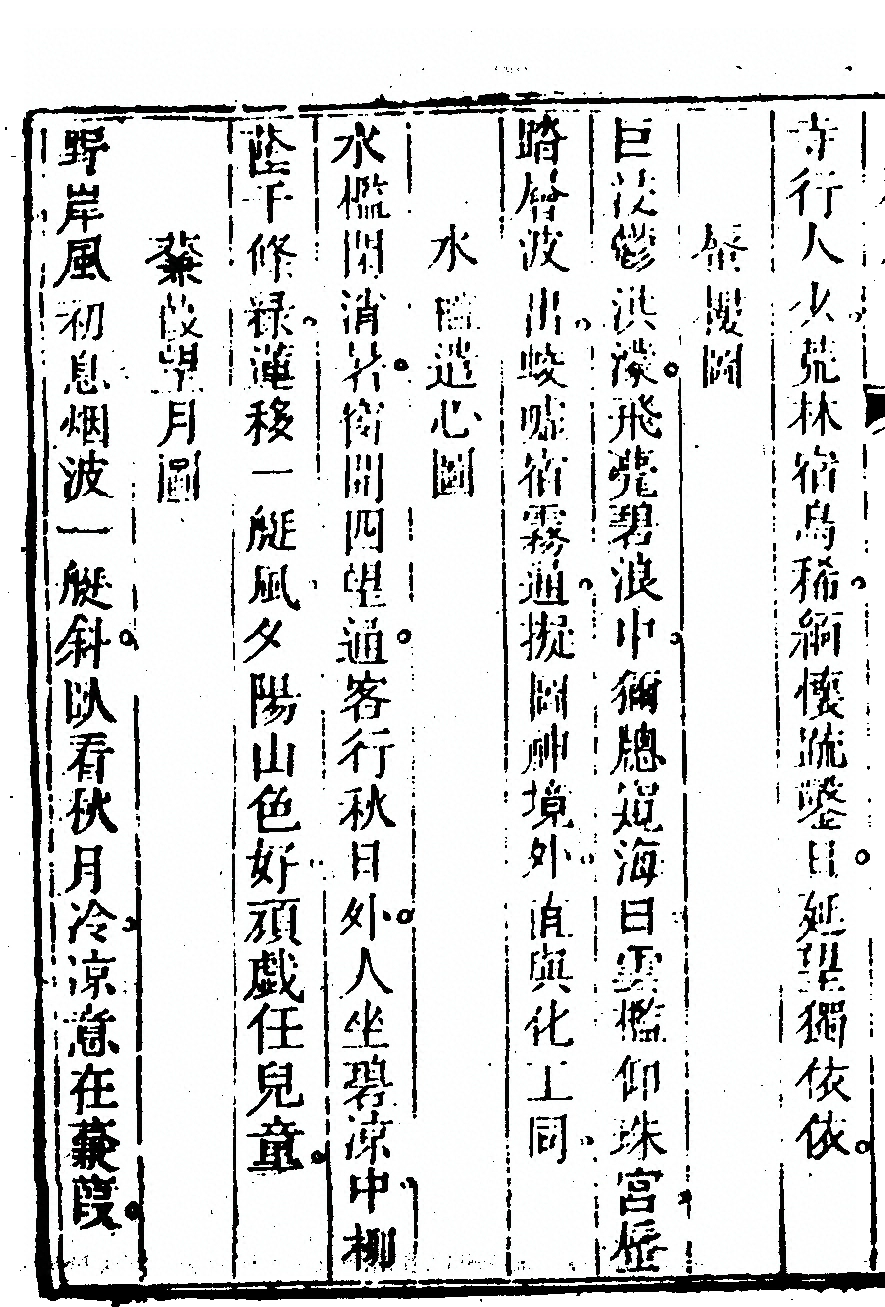 寺行人少荒林宿鳥稀緬懷疏鑿日延望獨依依
蜃樓圖
巨浸鬱洪濛飛甍碧浪中獼窺海日雲檻仰珠宮
踏層波出蛟嘘宿霧通擬圖神境外直與化工同
水檻遣心圖
水檻閒消暑窗開四望通客行秋日外人坐碧涼中柳
陰千條綠蓮移一艇風夕陽山色好頑戲任兒童
蒹葭望月圖
野岸風初息烟波一艇斜臥看秋月冷涼意在蒹葭